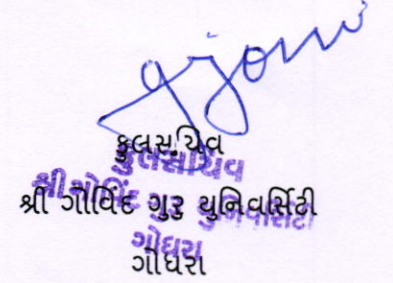 કુલસચિવ
કુલસચિવ
શ્રી ગોવિંદ ગુરુ યુનિવર્સિટી
શ્રી ગોવિંદ ગુરુ યુનિવર્સિટી
ગોધરા
ગોધરા